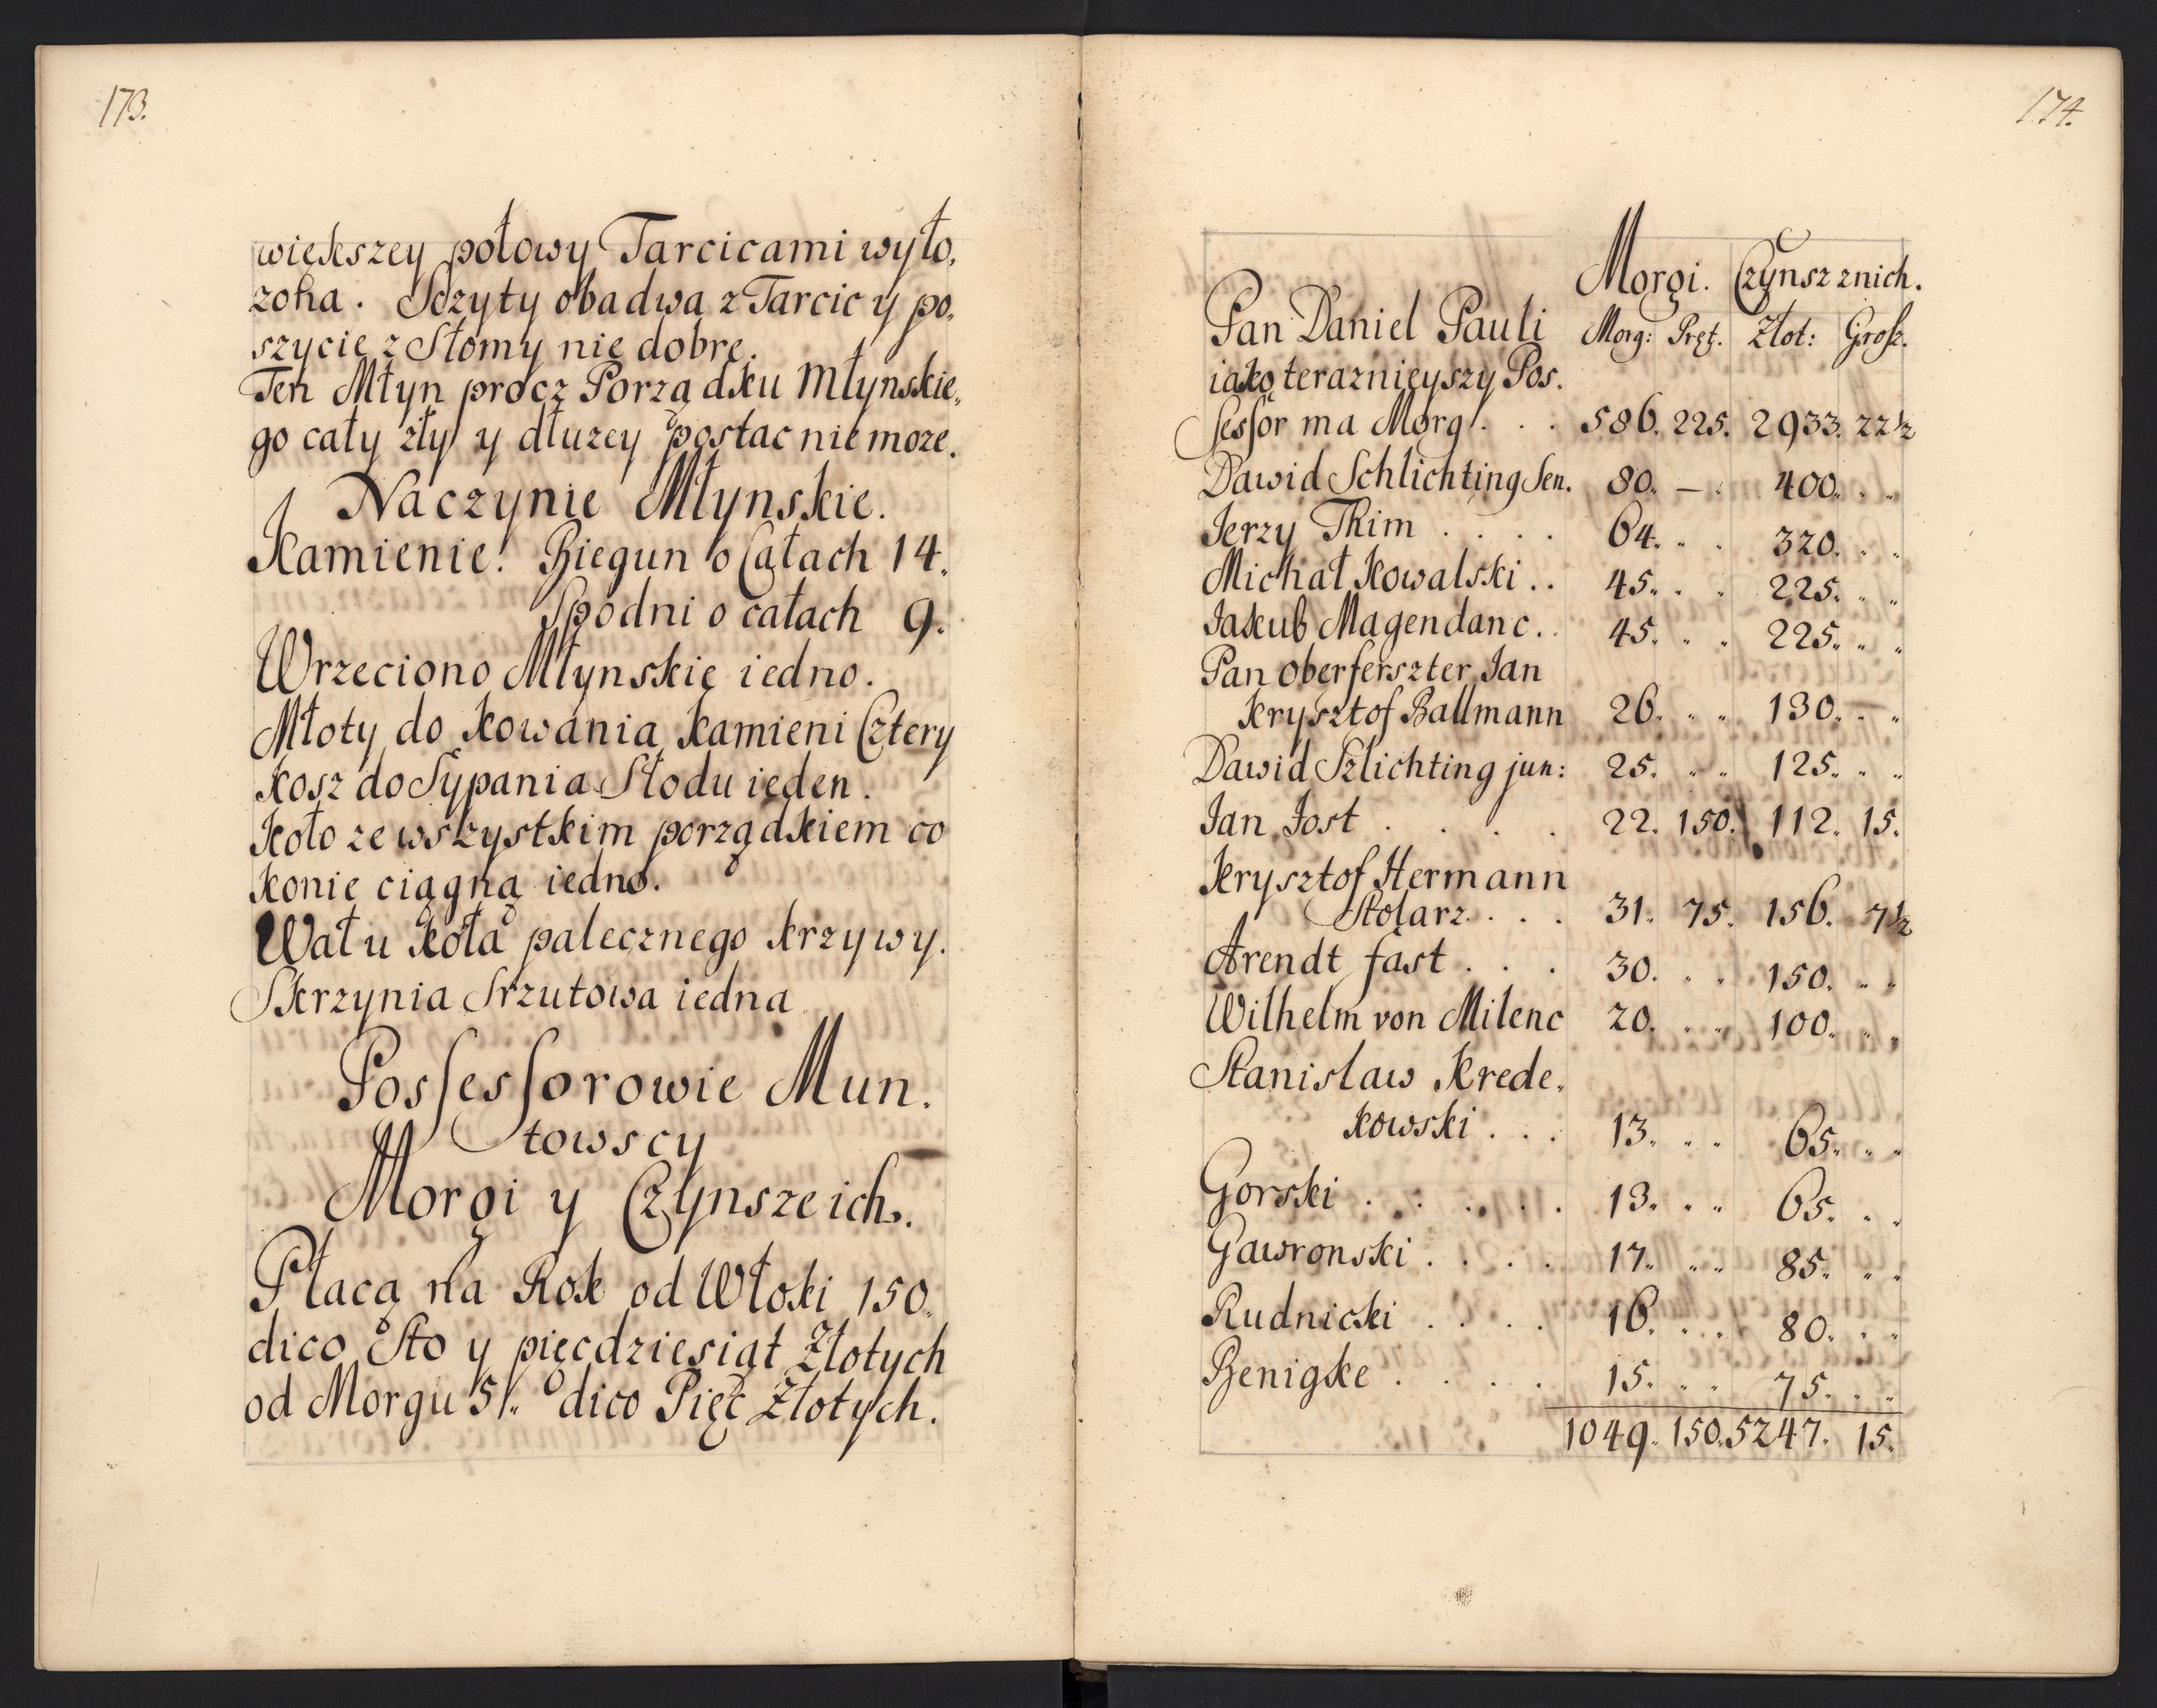 173.
większey połowy Tarcicami wyło,
zona. Sczyty obadwa z Tarcic y po,
szycie z Słomy nie dobre.
Ten Młyn procz Porządku Młynskie,
go cały zły y dłuzey postac nie moze.
Naczynie Młynskie.
Kamienie. Biegun o Całach 14.
Spodni o całach 9.
Wrzeciono Młynskie iedno.
Młoty do Kowania Kamieni Cztery
Kosz do Sypania Słodu ieden.
Koło ze wszystkim porządkiem co
Konie ciągną iedno.
Wał u Koła palecznego krzywy.
Skrzynia Srzutowa iedna
Possessorowie Mun,
towscy
Morgi y Czynsze ich.
Płacą na Rok od Włoki 150.
dico Sto y pięcdziesiąt Złotych
od Morgu 5/. dico Pięc Złotych.
174.
Morgi. Czynsz znich.
Pan Daniel Pauli Morg: Pręt. Złot: Grosz.
iako teraznieyszy Pos.
sessor ma Morg . . . 586. 225. 2933. 22½
Dawid Schlichting Sen. 80. — . 400. . .
Jerzy Thim . . . . 64. . . 320. . .
Michał Kowalski . . 45. . . 225. . .
Jakub Magendanc . . 45. . . 225. . .
Pan oberferszter Jan
Krysztof Ballmann 26. . . 130. . .
Dawid Szlichting jun: 25. . . 125. . .
Jan Jost . . . . 22. 150. 112. 15.
Krysztof Hermann
Stolarz . . . 31. 75. 156. 7½
Arendt fast . . . 30. . . 150. . .
Wilhelm von Milenc 20. . . 100. . .
Stanislaw Krede,
kowski . . . 13. . . 65. . .
Gorski . . . . . 13. . . 65. . .
Gawronski . . . . 17. . . 85. . .
Rudnicki . . . . 16. . . 80. . .
Benigke . . . . 15. . . 75. . .
1049. 150. 5247. 15.